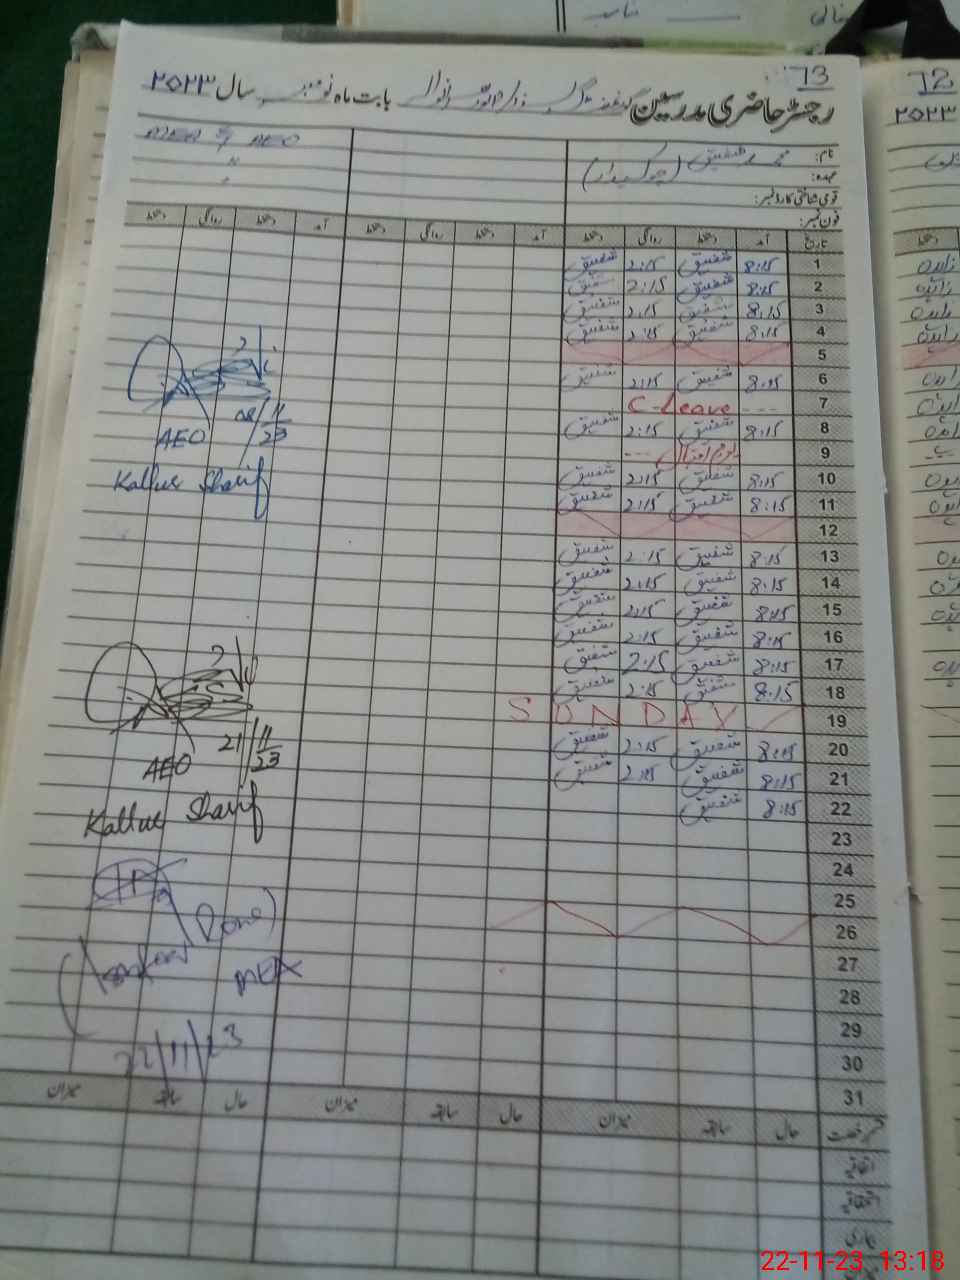 73
رجسٹر حاضری مدرسین
بابت ماہ نومبر سال ۲۰۲۳
MEA & AEO
نام: محمد شفیق (چوکیدار)
عہدہ:
قومی شناختی کارڈ نمبر:
فون نمبر:
تاریخ آمد دستخط روانگی دستخط آمد دستخط روانگی دستخط آمد دستخط روانگی دستخط
1 8:15 شفیق 2:15 شفیق
2 8:15 شفیق 2:15 شفیق
3 8:15 شفیق 2:15 شفیق
4 8:15 شفیق 2:15 شفیق
5
6 8:15 شفیق 2:15 شفیق
7 C-Leave ---
8 8:15 شفیق 2:15 شفیق
9 یوم اقبال ---
10 8:15 شفیق 2:15 شفیق
11 8:15 شفیق 2:15 شفیق
12
13 8:15 شفیق 2:15 شفیق
14 8:15 شفیق 2:15 شفیق
15 8:15 شفیق 2:15 شفیق
16 8:15 شفیق 2:15 شفیق
17 8:15 شفیق 2:15 شفیق
18 8:15 شفیق 2:15 شفیق
19 SUNDAY
20 8:15 شفیق 2:15 شفیق
21 8:15 شفیق 2:15 شفیق
22 8:15 شفیق
23
24
25
26
27
28
29
30
31
08/11/23
AEO
Kallur Sharif
21/11/23
AEO
Kallur Sharif
MEA
22/11/23
حال سابقہ میزان حال سابقہ میزان حال سابقہ میزان
اتفاقیہ
استحقاقیہ
72
۲۰۲۳
22-11-23 13:18